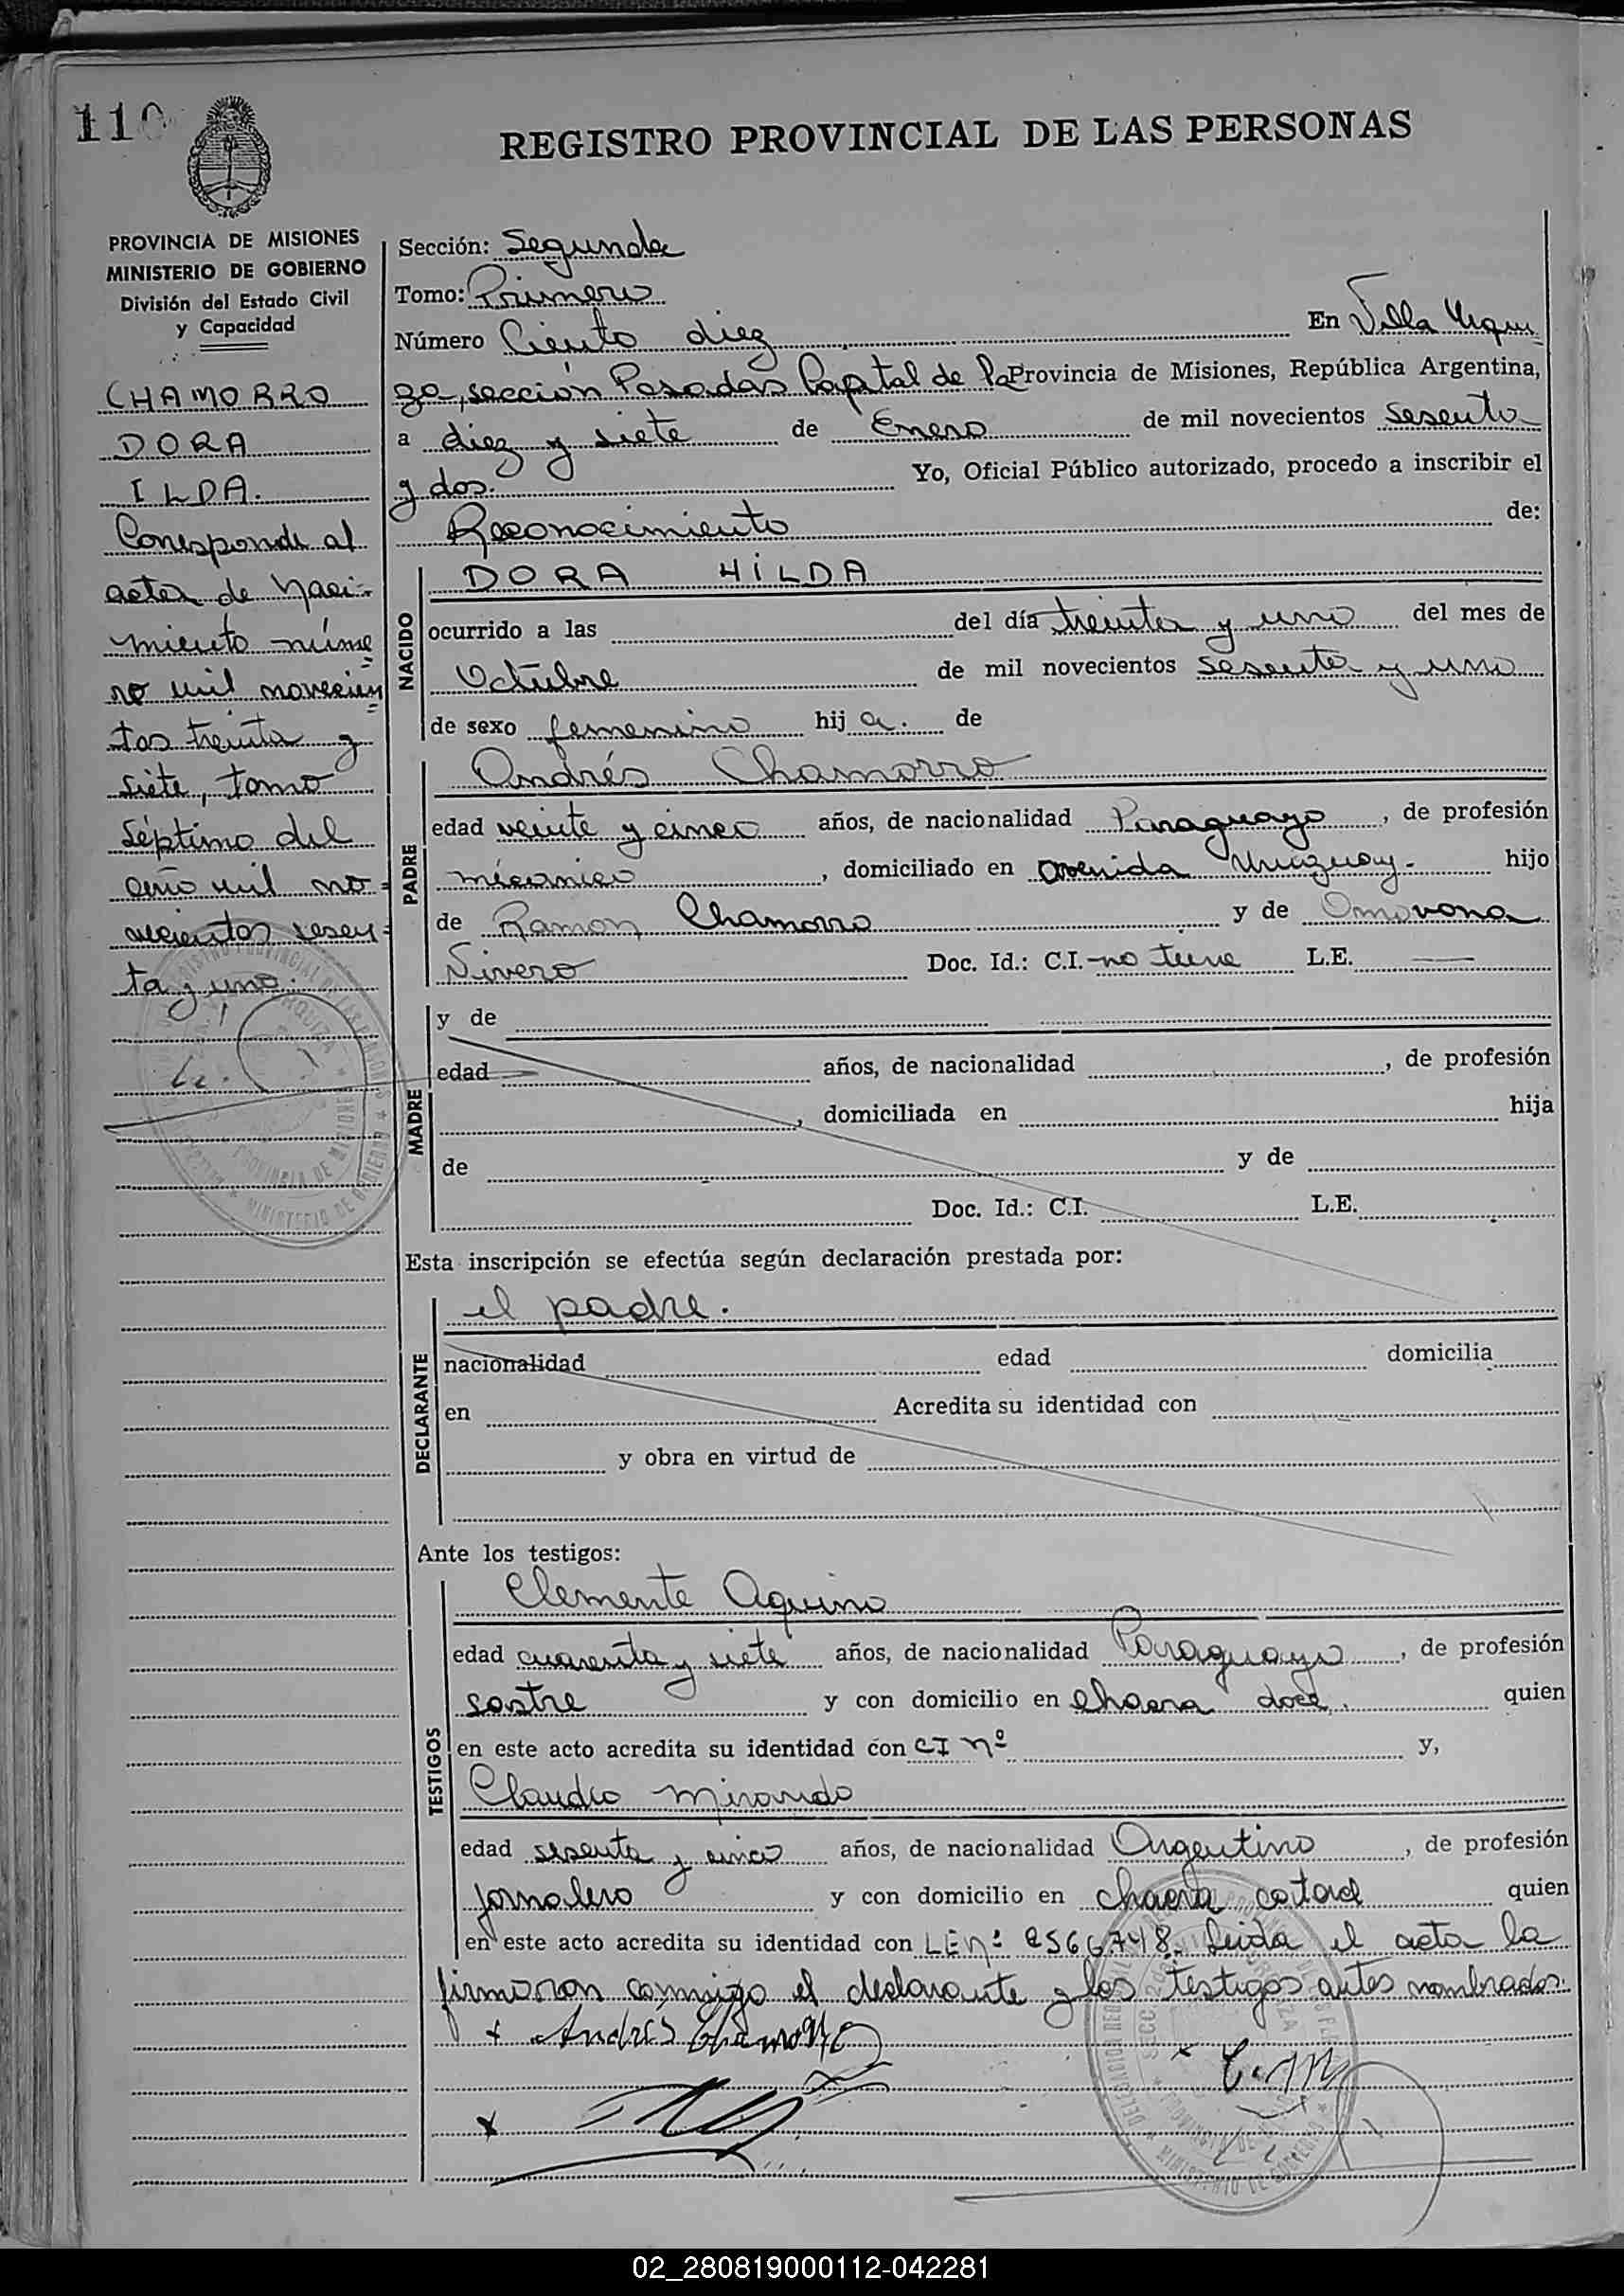 110
REGISTRO PROVINCIAL DE LAS PERSONAS
PROVINCIA DE MISIONES
MINISTERIO DE GOBIERNO
División del Estado Civil
y Capacidad
CHAMORRO
DORA
ILDA.
Corresponde al
acta de Naci-
miento núme
ro mil novecien
tos treinta y
siete, tomo
séptimo del
año mil no-
vecientos sesen-
ta y uno.
Sección: Segunda
Tomo: Primero
Número Ciento diez En Villa Urqui
za, sección Posadas Capital de la Provincia de Misiones, República Argentina,
a diez y siete de Enero de mil novecientos sesenta
y dos. Yo, Oficial Público autorizado, procedo a inscribir el
Reconocimiento de:
NACIDO
DORA HILDA
ocurrido a las del día treinta y uno del mes de
Octubre de mil novecientos sesenta y uno
de sexo femenino hij a. de
PADRE
Andrés Chamorro
edad veinte y cinco años, de nacionalidad Paraguayo, de profesión
mécanico, domiciliado en avenida Uruguay- hijo
de Ramon Chamorro y de
Doc. Id.: C.I. no tiene L.E.
MADRE
y de
edad años, de nacionalidad , de profesión
, domiciliada en hija
de y de
Doc. Id.: C.I. L.E.
Esta inscripción se efectúa según declaración prestada por:
DECLARANTE
el padre.
nacionalidad edad domicilia
en Acredita su identidad con
y obra en virtud de
Ante los testigos:
TESTIGOS
Clemente Aquino
edad cuarenta y siete años, de nacionalidad Paraguayo, de profesión
sastre y con domicilio en chacra doce. quien
en este acto acredita su identidad con CI nº y,
Claudio Mirando
edad sesenta y cinco años, de nacionalidad Argentino, de profesión
jornalero y con domicilio en chacra catorce quien
en este acto acredita su identidad con LE nº 2566748. Leida el acta la
firmaron conmigo el declarante y los testigos antes nombrados.
Andrés Chamorro
02_280819000112-042281